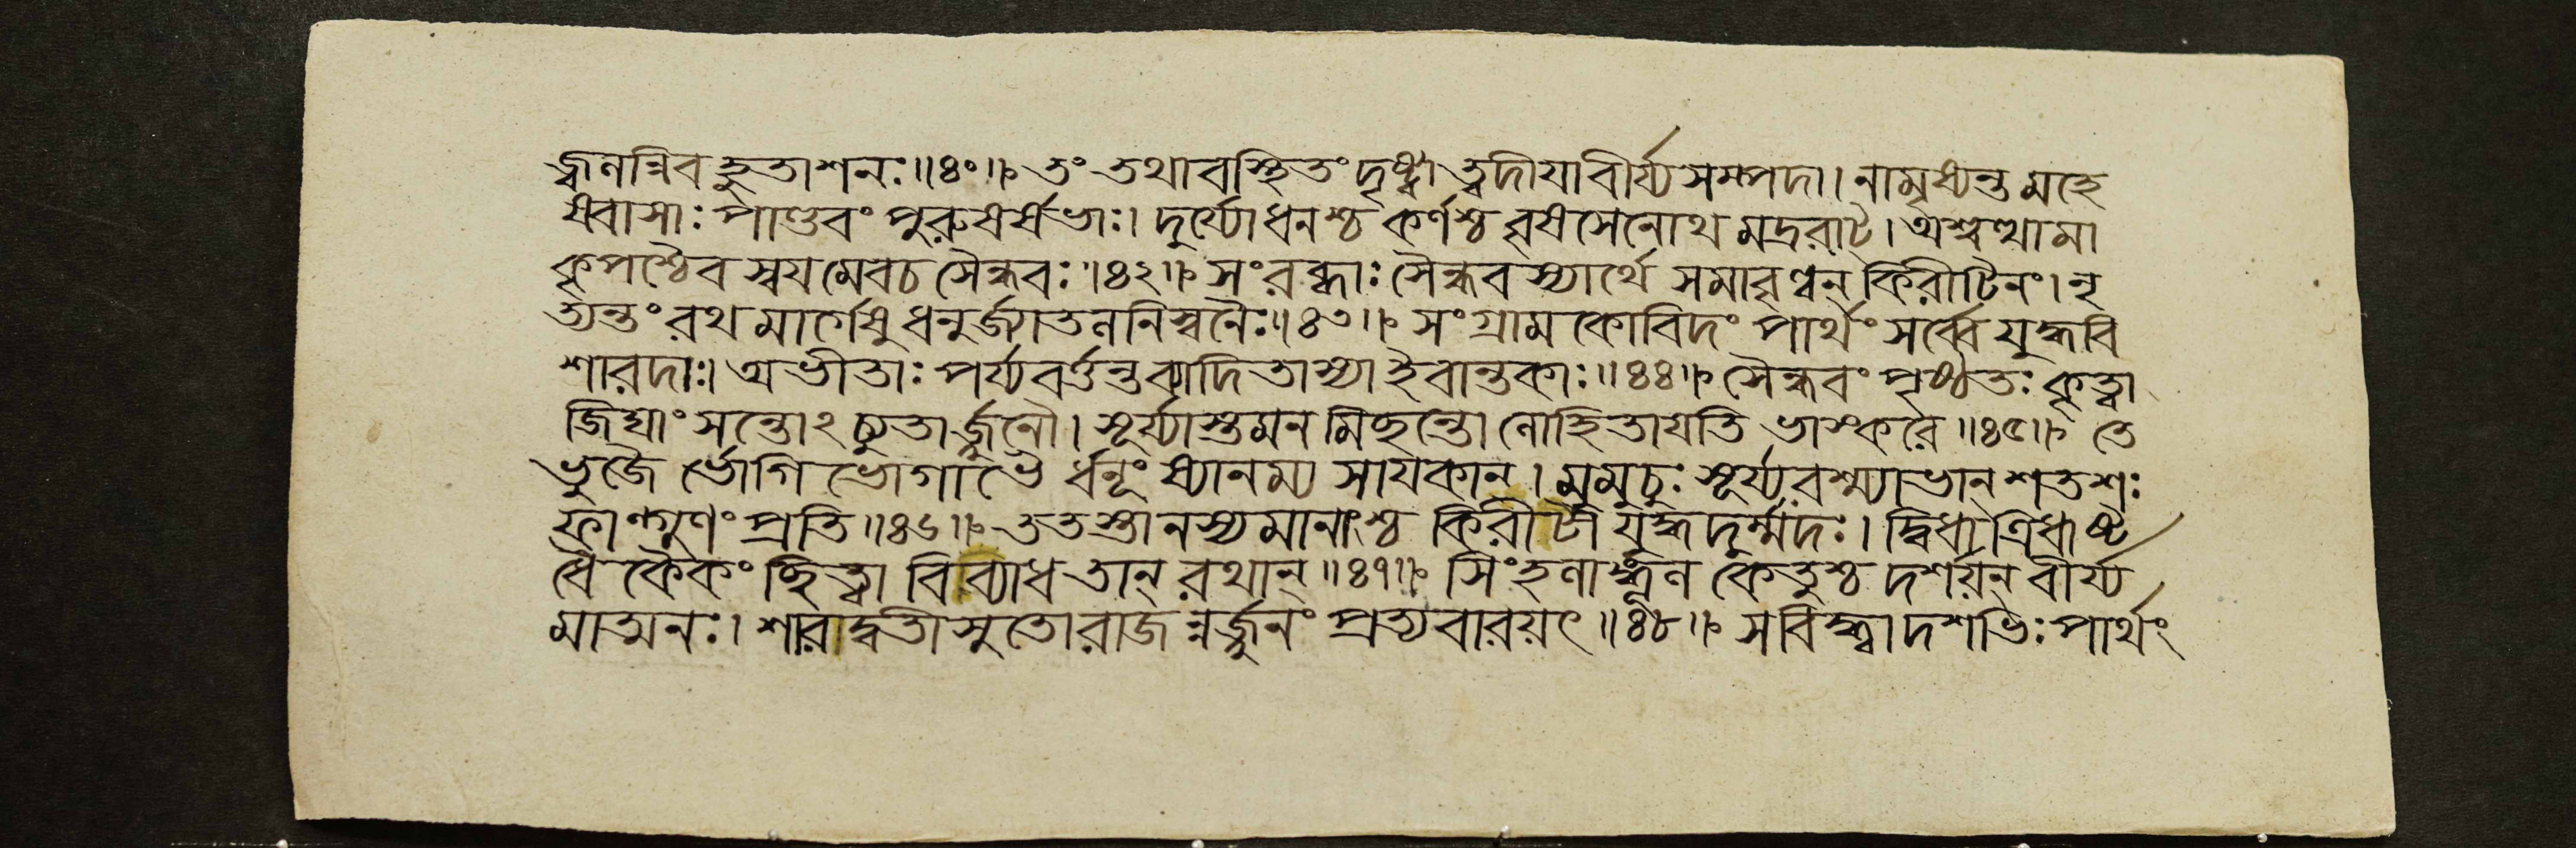 জ্বলন্নিব হুতাশনঃ॥৪০॥ তং তথাবস্থিতং দৃষ্ট্বা ত্বদীয়াবীর্য্যসম্পদা। নামৃষ্যন্ত মহে
ষ্বাসাঃ পাণ্ডবং পুরুষর্ষভাঃ। দুর্য্যোধনশ্চ কর্ণশ্চ বৃষসেনোথ মদ্ররাট্। অশ্বত্থামা
কৃপশ্চৈব স্বয়মেবচ সৈন্ধবঃ॥৪২॥ সংরব্ধাঃ সৈন্ধবস্যার্থে সমাবৃণ্বন্ কিরীটিনং। নৃ
ত্যন্তং রথমার্গেষু ধনুর্জ্যাতলনিস্বনৈঃ॥৪৩॥ সংগ্রামকোবিদং পার্থং সর্ব্বে যুদ্ধবি
শারদাঃ। অভীতাঃ পর্য্যবর্ত্তন্ত ব্যাদিতাস্যাইবান্তকাঃ॥৪৪॥ সৈন্ধবং পৃষ্ঠতঃ কৃত্বা
জিঘাংসন্তোঽচ্যুতার্জ্জুনৌ। সূর্য্যাস্তমনমিচ্ছন্তো লোহিতায়তি ভাস্করে॥৪৫॥ তে
ভুজৈ র্ভোগিভোগাভৈ র্ধনূংষ্যানম্য সায়কান্। মুমুচুঃ সূর্য্যরশ্ম্যাভান্ শতশঃ
ফাল্গুণং প্রতি॥৪৬॥ ততস্তানস্যমানাংশ্চ কিরীটী যুদ্ধদুর্ম্মদঃ। দ্বিধা ত্রিধাষ্ট
ধৈকৈকং ছিত্বা বিব্যাধ তান্ রথান্॥৪৭॥ সিংহলাঙ্গূলকেতুশ্চ দর্শয়ন্ বীর্য্য
মাত্মনঃ। শারাদ্বতীসুতোরাজন্নর্জ্জুনং প্রত্যবারয়ৎ॥৪৮॥ সবিদ্ধ্বা দশভিঃ পার্থং